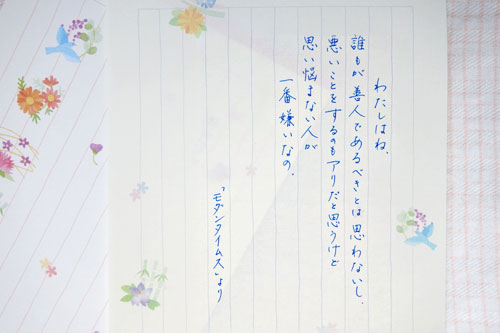 わたしはね、
誰もが善人であるべきとは思わないし、
悪いことをするのもアリだと思うけど
思い悩まない人が
一番嫌いなの。
「モダンタイムス」より